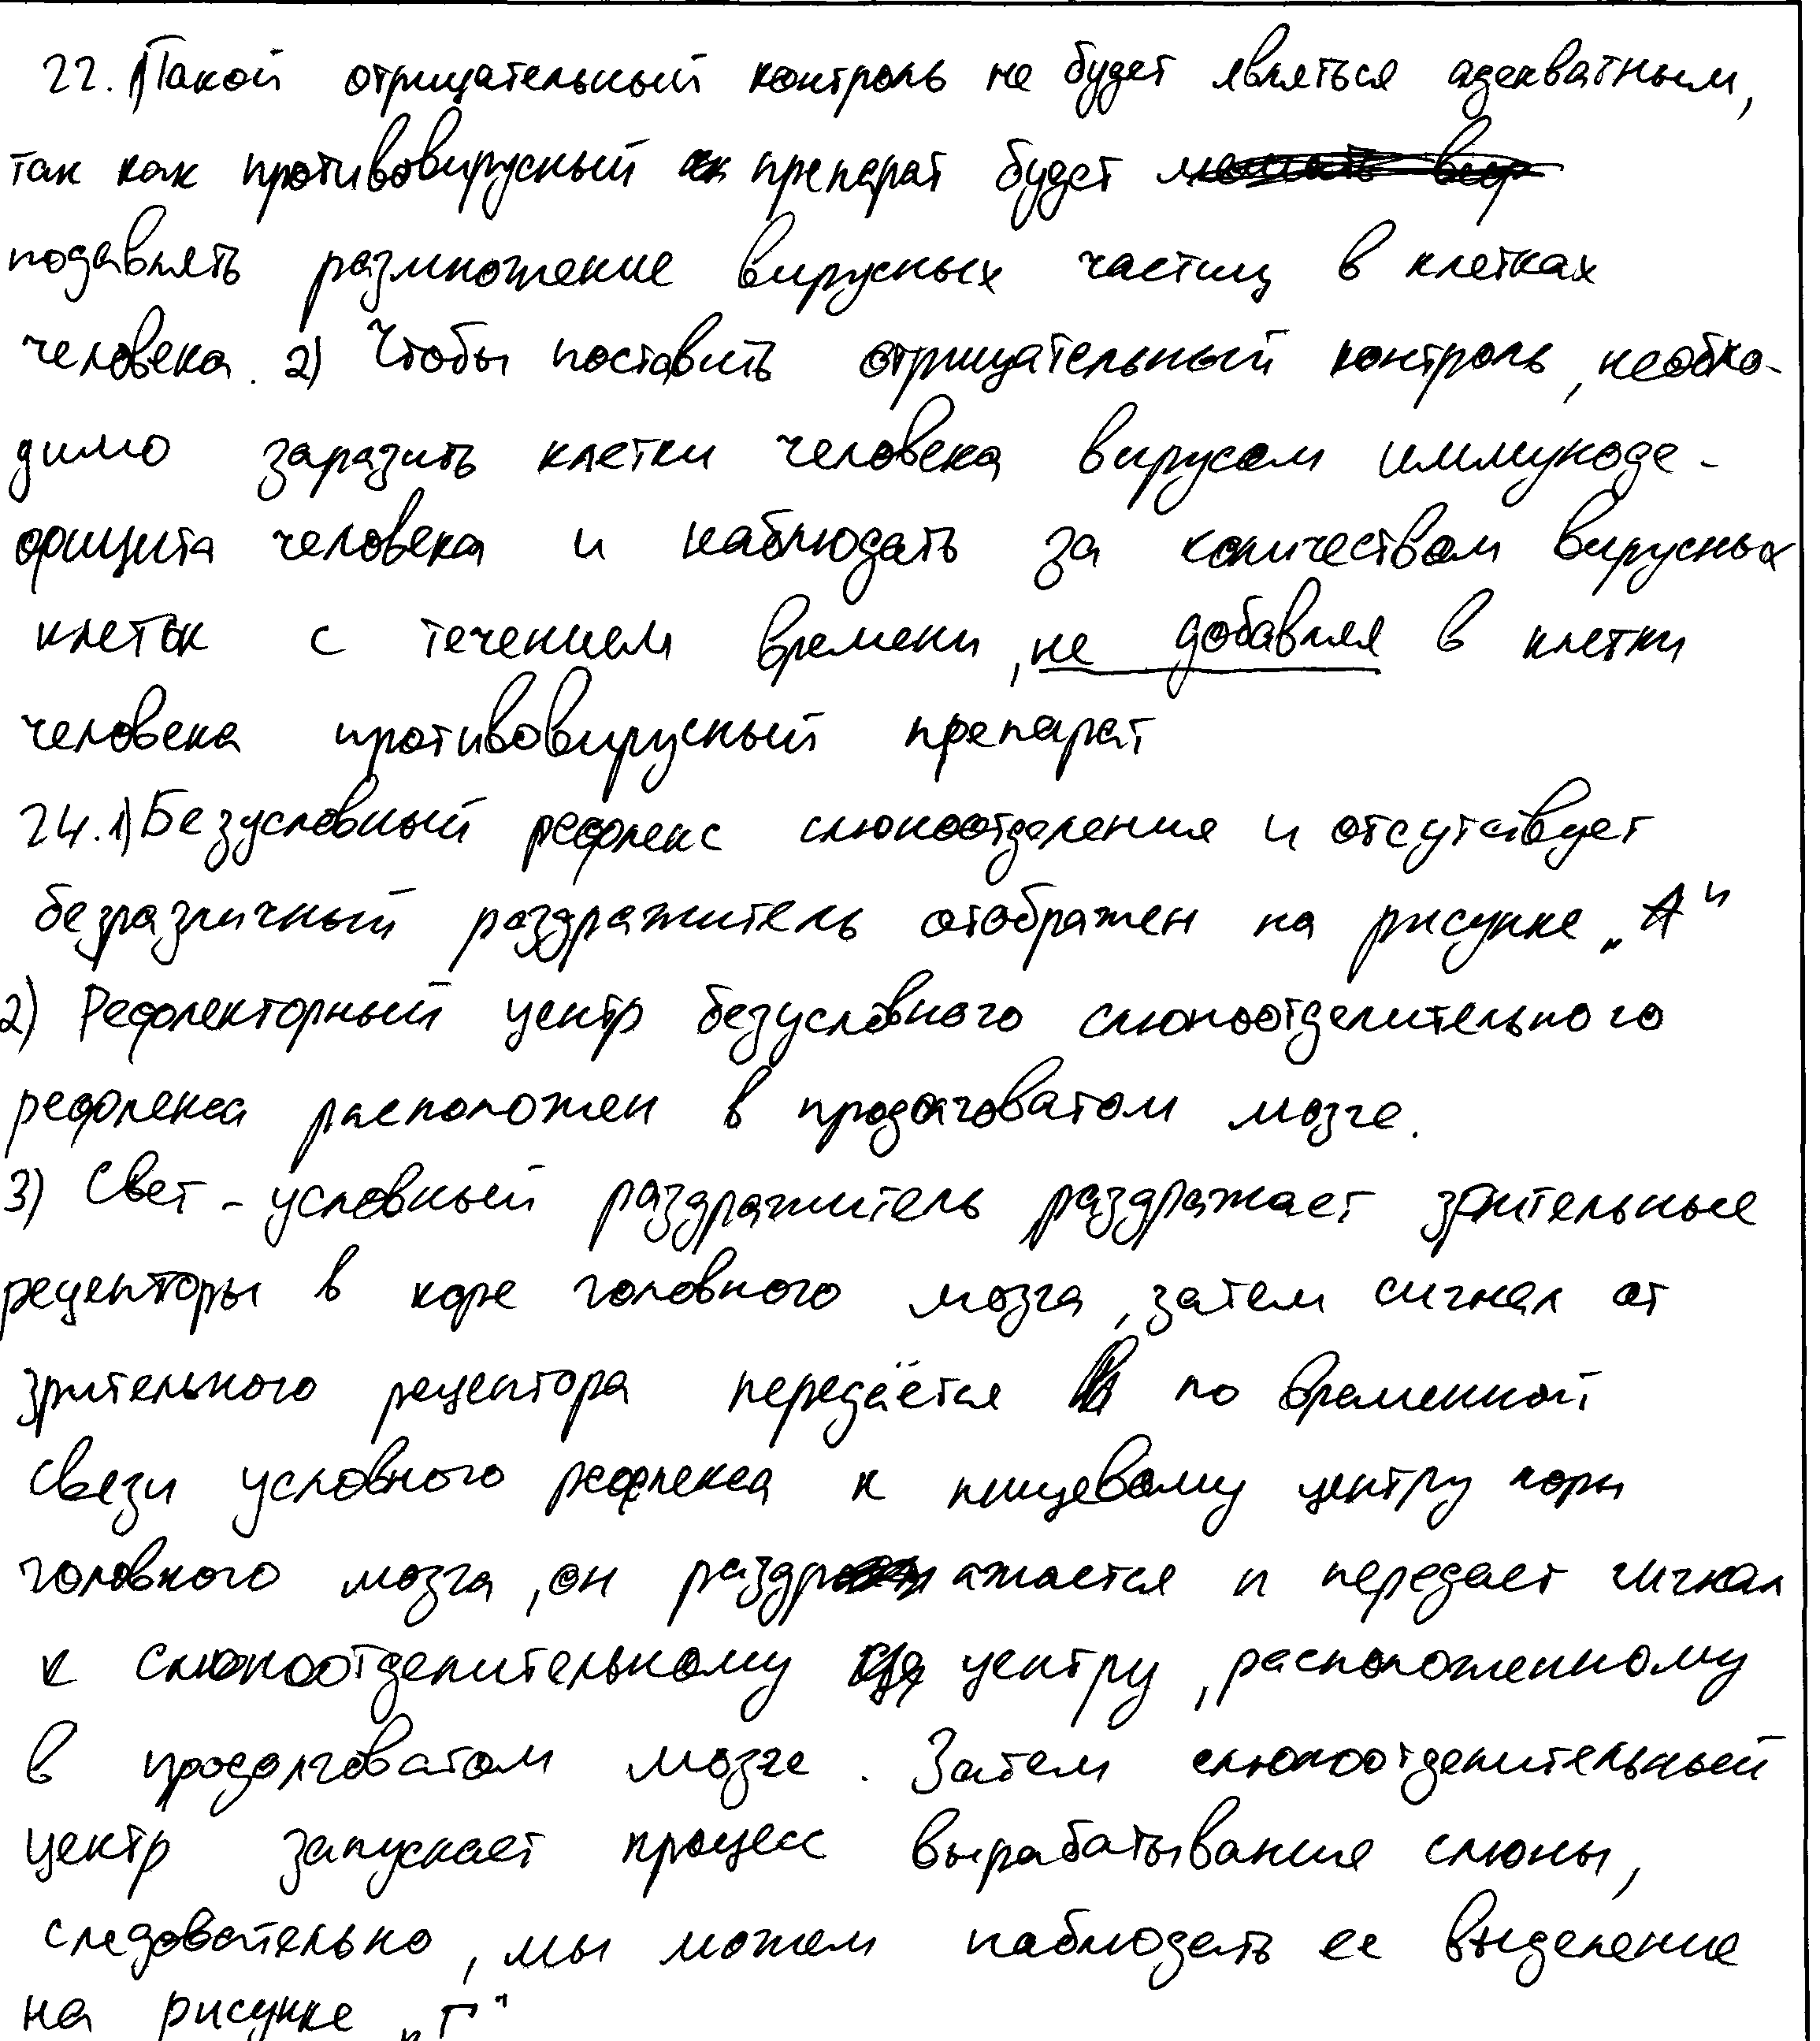 22. 1) Такой отрицательный контроль не будет являться адекватным,
так как противовирусный препарат будет
подавлять размножение вирусных частиц в клетках
человека. 2) Чтобы поставить отрицательный контроль, необхо-
димо заразить клетки человека вирусом иммуноде-
фицита человека и наблюдать за количеством вирусных
клеток с течением времени, не добавляя в клетки
человека противовирусный препарат
24. 1) Безусловный рефлекс слюноотделения и отсутствует
безразличный раздражитель отображен на рисунке „А“
2) Рефлекторный центр безусловного слюноотделительного
рефлекса расположен в продолговатом мозге.
3) Свет - условный раздражитель раздражает зрительные
рецепторы в коре головного мозга, затем сигнал от
зрительного рецептора передаётся по временной
связи условного рефлекса к пищевому центру коры
головного мозга, он раздражается и передает сигнал
к слюноотделительному центру, расположенному
в продолговатом мозге. Затем слюноотделительный
центр запускает процесс вырабатывания слюны,
следовательно, мы можем наблюдать ее выделение
на рисунке „Г“